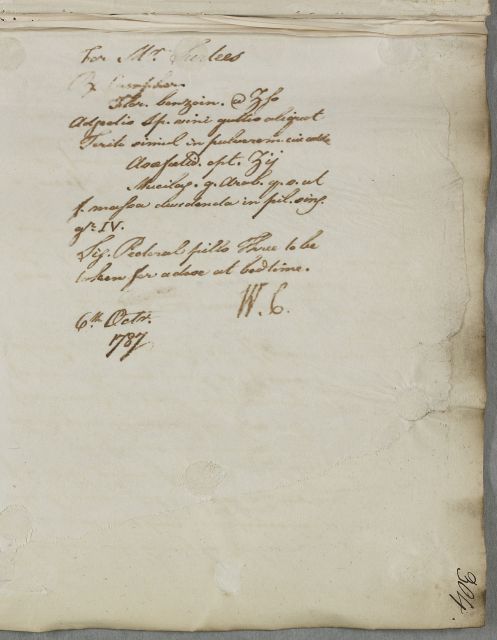 For Mr. Surtees
℞ Camphor.
Flor. benzoin. @ ʒſs
Adspolio Sp. vini guttis aliquot
Terito simul in pulverem cui adde
Asafœtid. opt. ʒij
Mucilag. g. Arab. q. s. ut
f. massa dividenda in pil. sing.
gr. IV.
Sig. Pectoral pills Three to be
taken for a dose at bedtime.
W. C.
6th. Octr.
1787
304